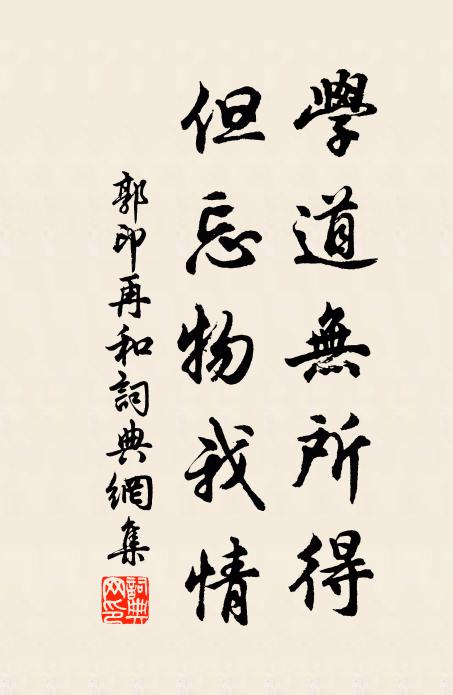 學道無所得
但忘物我情
郭印再和詞典網集
詞典网印